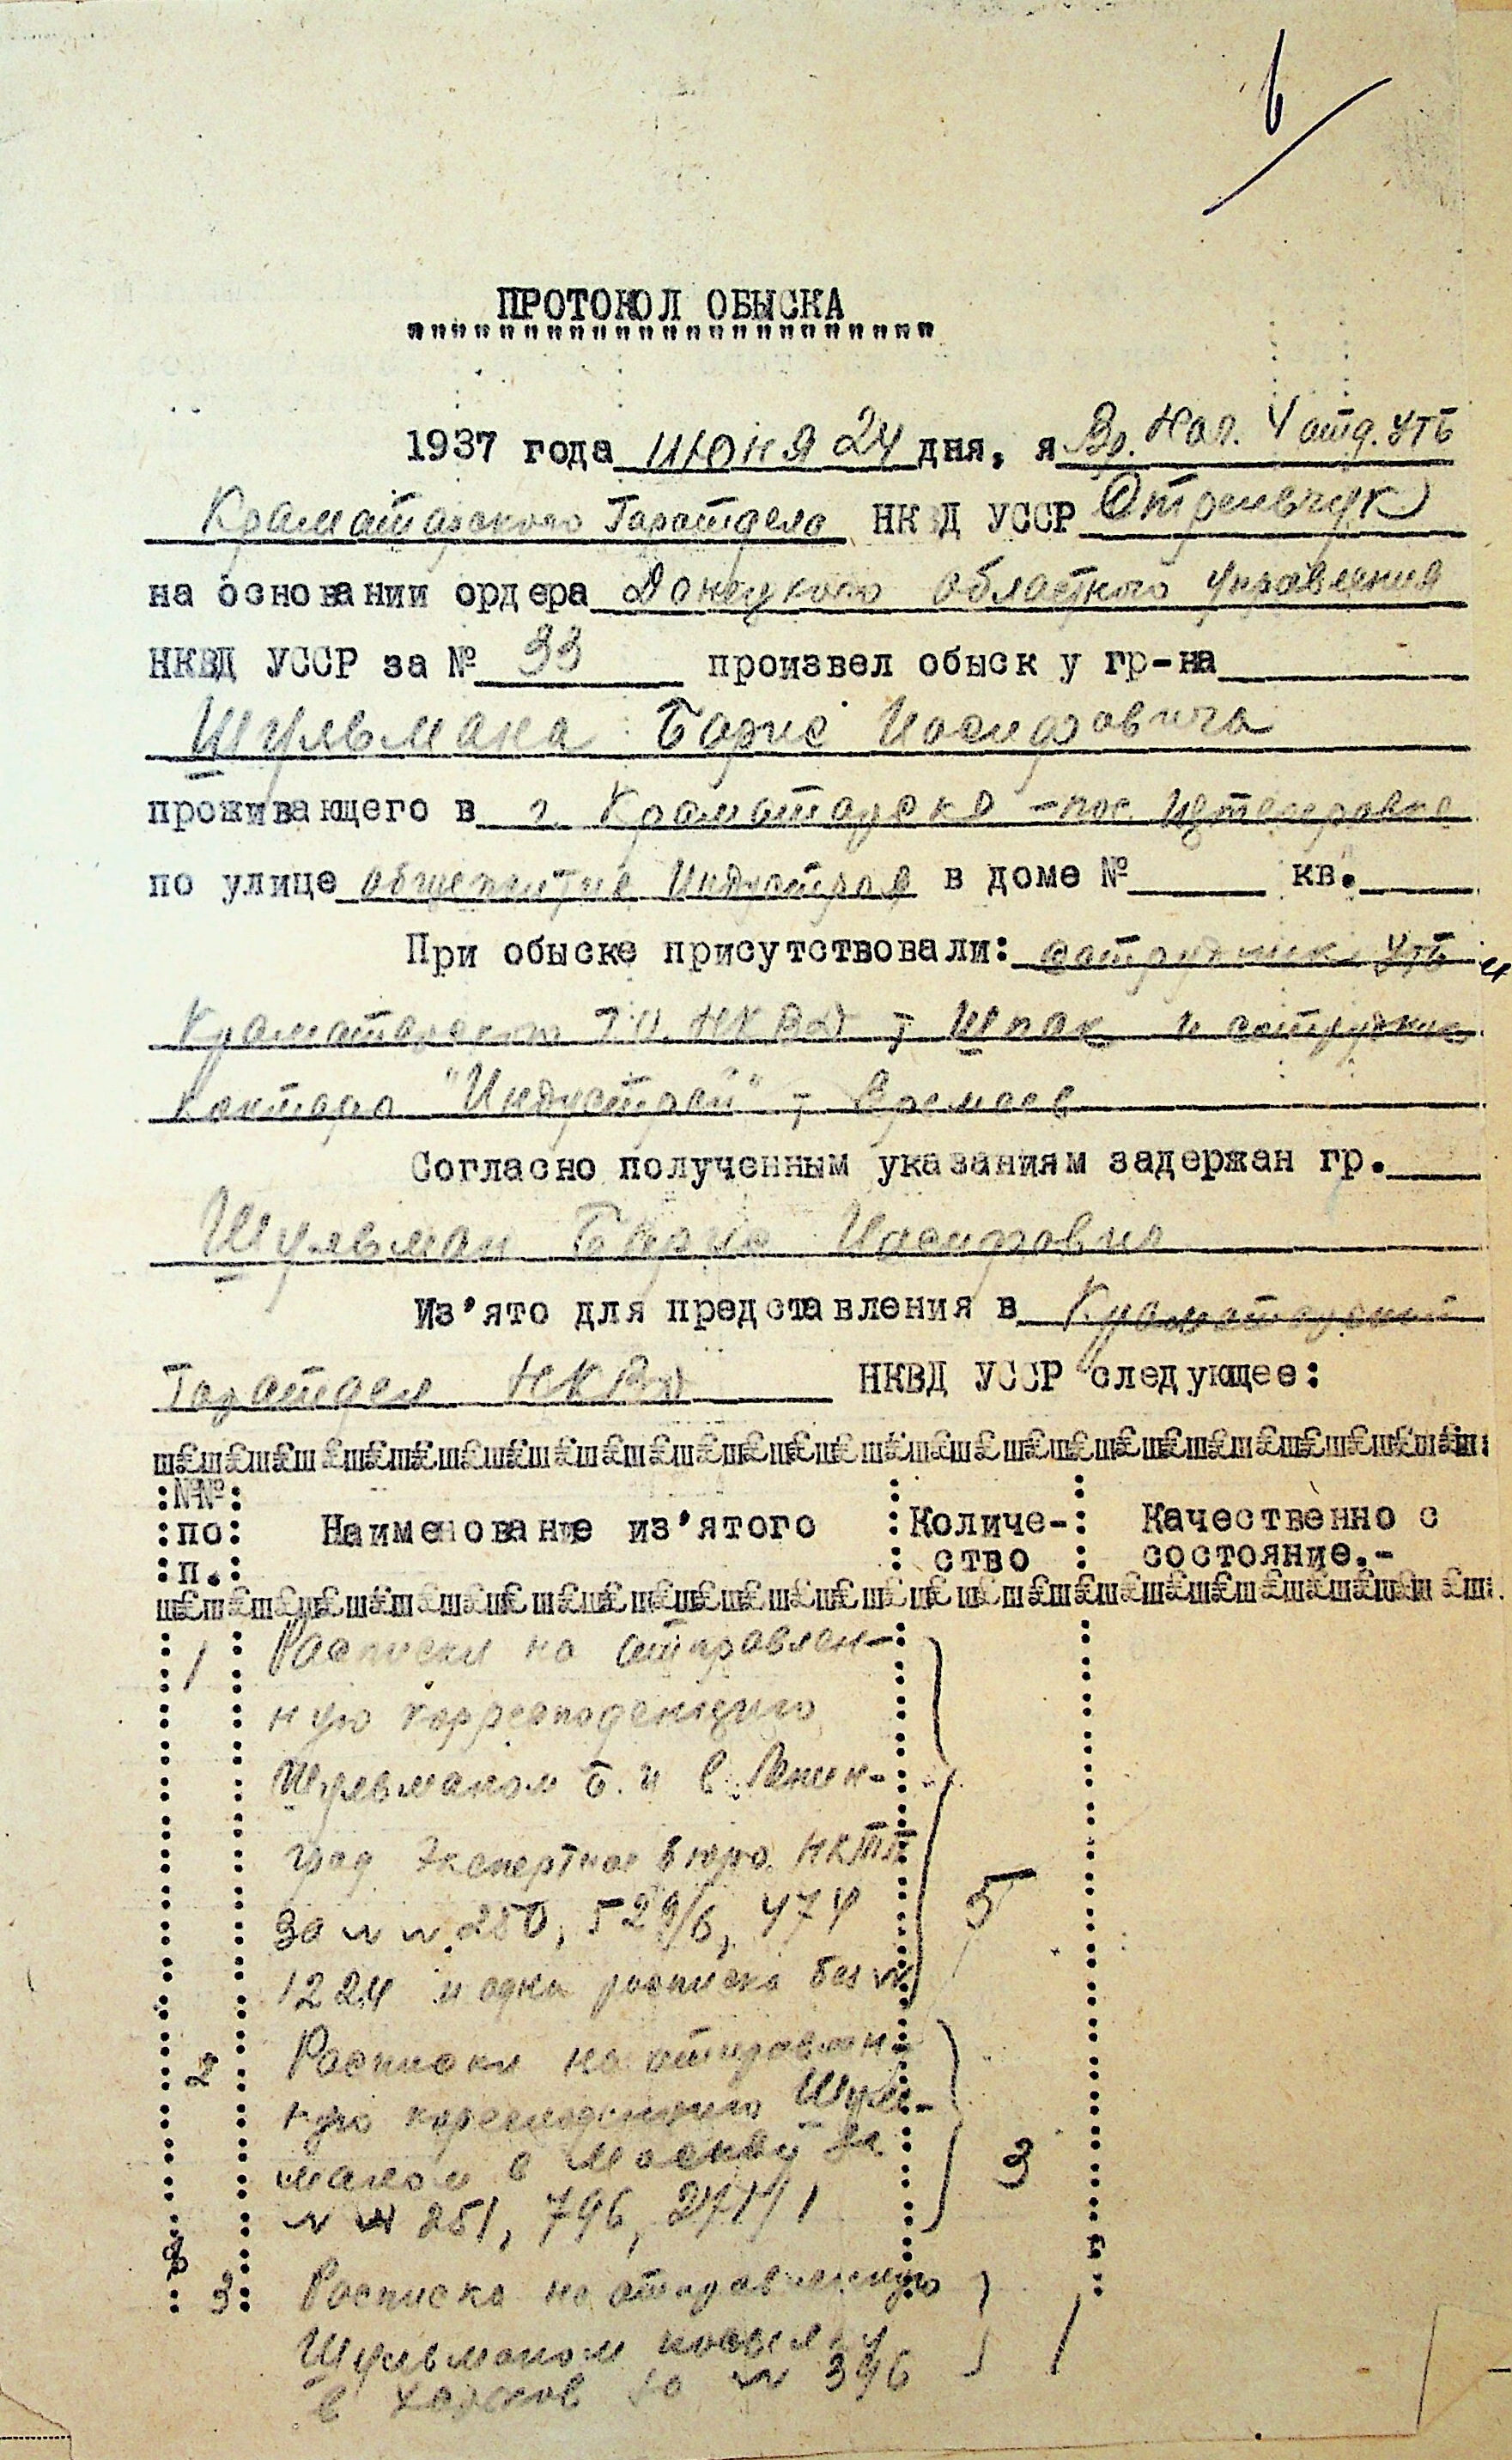 6
ПРОТОКОЛ ОБЫСКА
1937 года июня 24 дня, я Вр. Нач. 4 отд. УГБ
Краматорского Горотдела НКВД УССР
на основании ордера Донецкого областного Управления
НКВД УССР за № 33 произвел обыск у гр-на
Шульмана Борис Иосифовича
проживающего в г. Краматорске - пос.
по улице общежитие Индустрой в доме № кв.
При обыске присутствовали: сотрудник УГБ и
Краматорского Г.О. НКВД т. Шпак и сотрудник
"Индустрой" т. Еремеев
Согласно полученным указаниям задержан гр.
Шульман Борис Иосифович
Из'ято для представления в Краматорский
Горотдел НКВД НКВД УССР следующее:
№№ по п. Наименование из'ятого Количе-ство Качественно с состояние.-
1 Расписки на отправлен-
ную корреспонденцию
Шульманом Б. И в Ленин-
град Экспертное бюро НКТП
за № № 250, 529/6, 474 5
1224 и одна расписка без №
2 Расписки на отправлен-
ную кореспонденцию Шуль-
маном в Москву за 3
№ № 251, 796, 271/1
3 Расписка на отправленную
Шульманом посылку 1
в Харьков за № 396